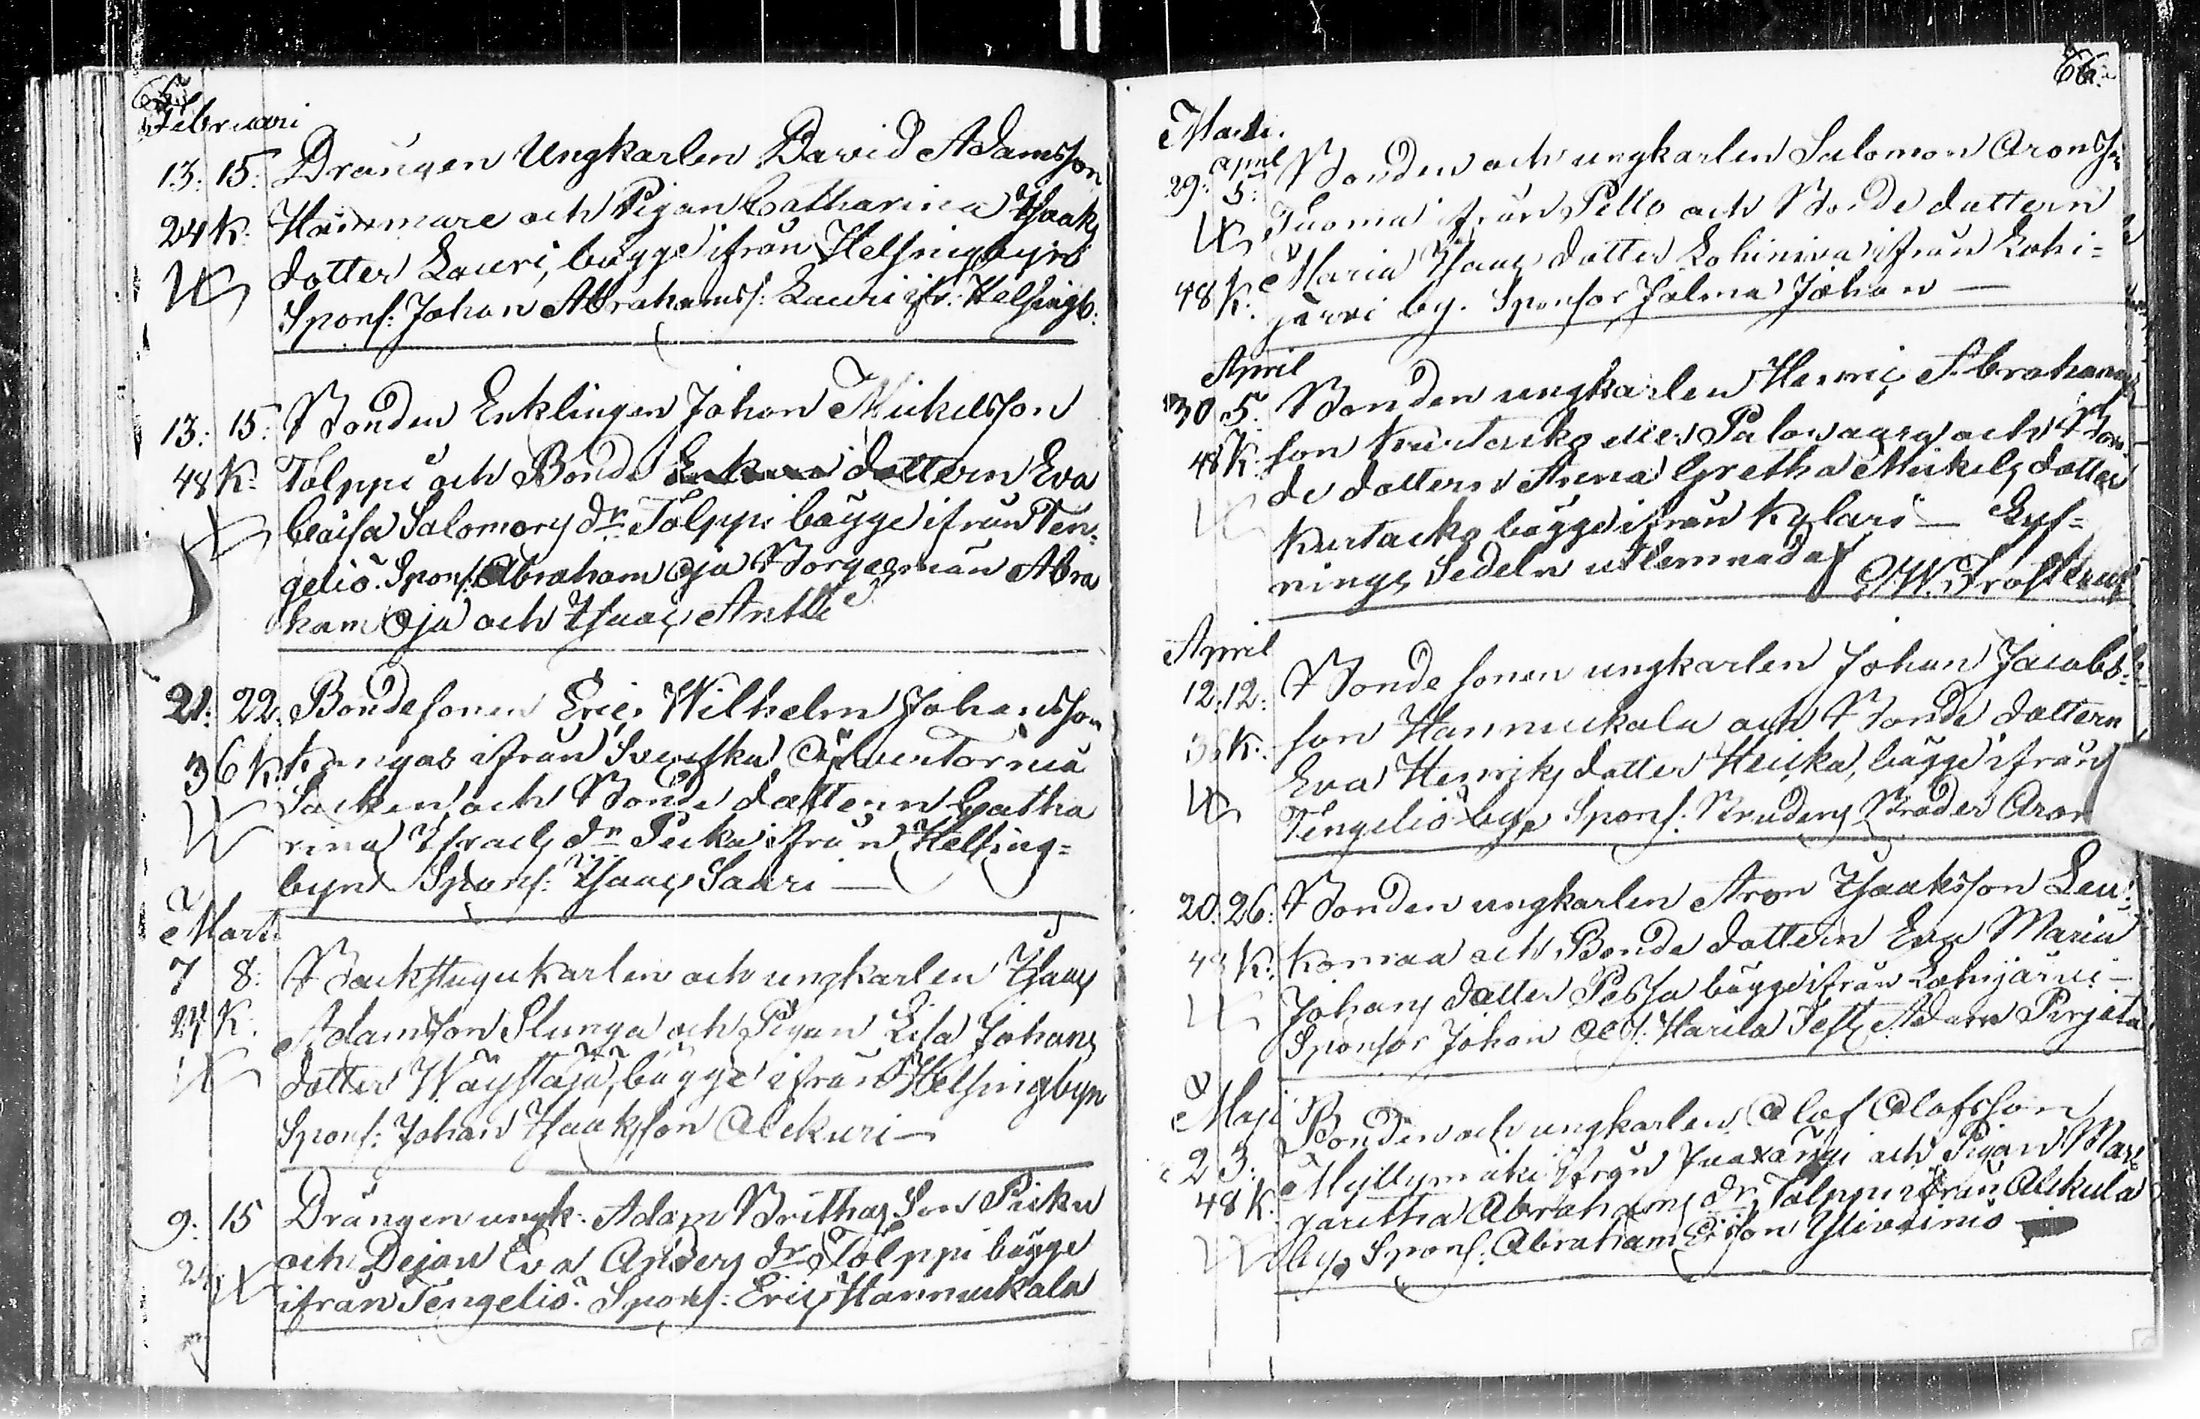 65.
Februari
13. 15. Drängen Ungkarlen David Adamsson
24 K. Hannmare och Pigan Catharina Isaaks
dotter Lauri, bägge ifrån Helsingbyn
Spons: Johan Abrahamss: Lauri ifr: Helsingb:
13: 15: Bonden Enklingen Johan Mickelsson
48 K. Tolppi och Bonde dottern Eva
Caisa Salomons dr Tolppi bägge ifrån Ten-
geliö. Spons: Abraham Oja Borgesman Abra
ham Oja och Isaac Antti
21: 22. Bondesonen Eric Wilhelm Johansson
36 K. Kangas ifrån Svenska Öfvertorneå
Socken och Bonde dottern Catha
rina Israels dr Pecka ifrån Helsing-
byn Spons: Isaac Saari —
Marti
7 8: Backstugukarlen och ungkarlen Isaac
24 K. Adamsson Slunga och Pigan Lisa Johans
dotter Wäystäjä, bägge ifrån Helsingbyn
Spons: Johan Isaksson Alkuri —
9: 15 Drängen ungk: Adam Brithas Son Picku
24 och Dejan Eva Anders dr Tolppi bägge
ifrån Tengeliö. Spons: Eric Hannukala
66.
Marti.
april
29: 5: Bonden och ungkarlen Salomon Aronss
Tuoma ifrån Pello och Bonde dottern
Maria Isaacs dotter Lohiniva ifrån Lohi-
48 K. järvi by. Sponsor Jolma Johan —
April
30 5. Bonden ungkarlen Henric Abrahams
48 K. son Kurtacko eller Palovaara och Bon
de dottern Anna Gretha Mickels dotter
Kurtacko bägge ifrån Kolari — Lys-
nings Sedeln utlemnad af
April
12. 12: Bonde sonen ungkarlen Johan Jacobs-
36 K. son Hannukala och Bonde dottern
Eva Henriks dotter Heicka, bägge ifrån
Tengeliö by. Spons: Brudens Broder Aron
20. 26: Bonden ungkarlen Aron Isaaksson Leu-
48 K. komaa och Bonde dottern Eva Maria
Johans dotter Pessa bägge ifrån Lohijärvi —
Sponsor Johan Harila Test: Adam Pirjeta
Maji Bonden och ungkarlen Olof Olofsson
2 3: Myllymäki ifrån Juoxängi och Pigan Mar-
48 K. garetha Abrahams dr Tolppi ifrån Alkula
by, Spons: Abraham Ersson Ylivainio